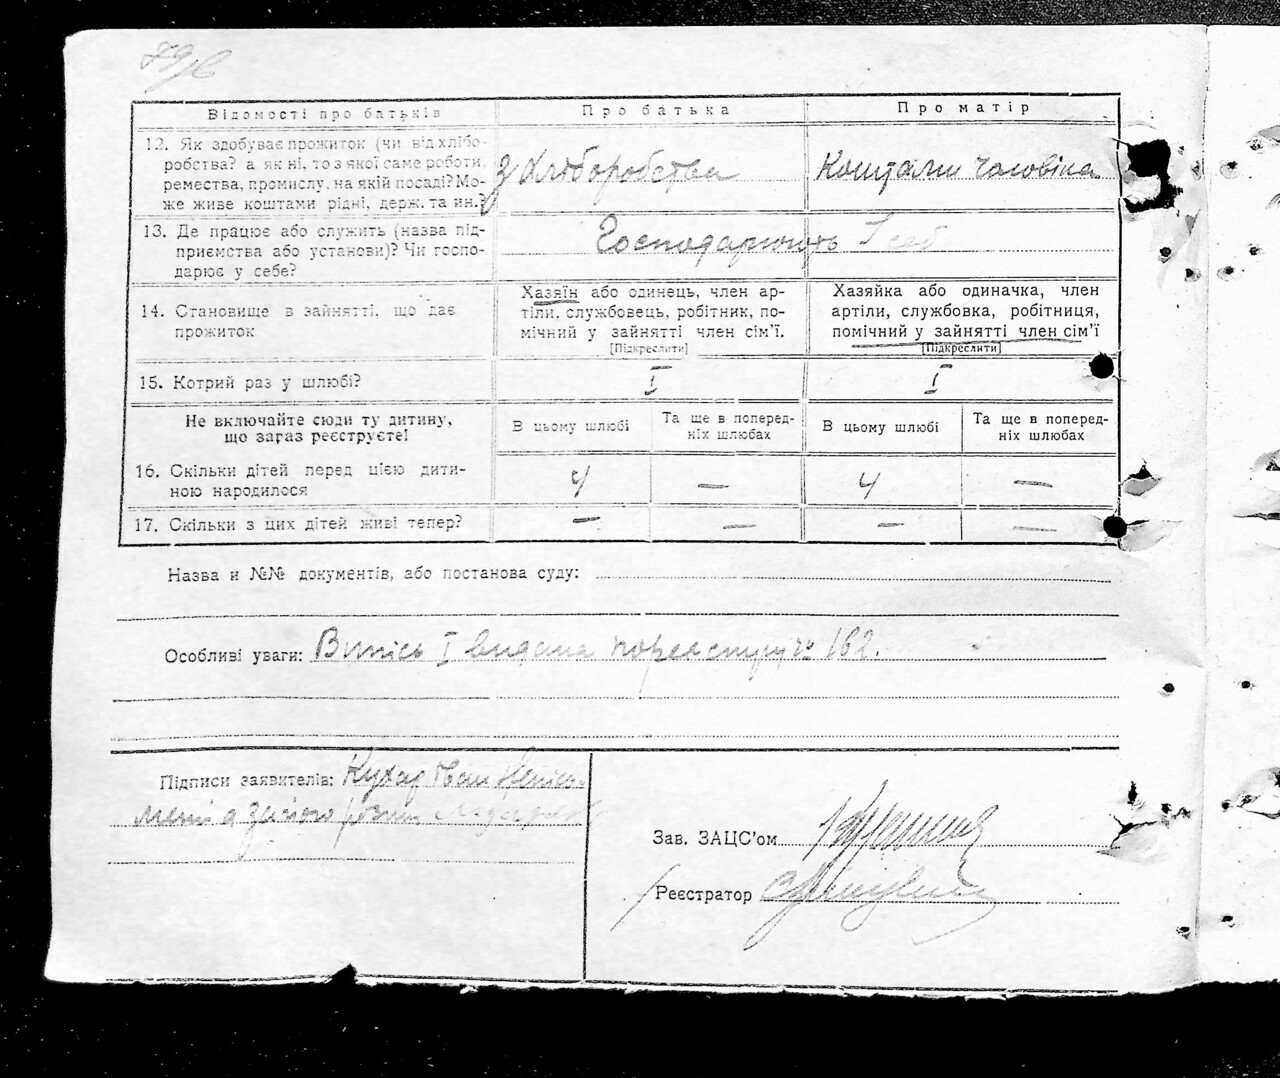 Відомості про батьків
Про батька
Про матір
12. Як здобуває прожиток (чи від хлібо-
робства? а як ні, то з якої саме роботи,
ремества, промислу, на якій посаді? Мо-
же живе коштами рідні, держ. та ин.?
З Хліборобства
Коштами чоловіка
13. Де працює або служить (назва під-
приємства або установи)? Чи госпо-
дарює у себе?
Господарюють
14. Становище в зайнятті, що дає
прожиток
Хазяїн або одинець, член ар-
тіли, службовець, робітник, по-
мічний у зайнятті член сім'ї.
[Підкреслити]
Хазяйка або одиначка, член
артіли, службовка, робітниця,
помічний у зайнятті член сім'ї
[Підкреслити]
15. Котрий раз у шлюбі?
I
I
Не включайте сюди ту дитину,
що зараз реєструєте!
В цьому шлюбі
Та ще в поперед-
ніх шлюбах
В цьому шлюбі
Та ще в поперед-
ніх шлюбах
16. Скільки дітей перед цією дити-
ною народилося
4
—
4
—
17. Скільки з цих дітей живі тепер?
—
—
—
—
Назва и №№ документів, або постанова суду:
Особливі уваги: Випись I видана по реєстру № 162.
Підписи заявителів: Кухар Іван
Зав. ЗАЦС'ом
Реєстратор